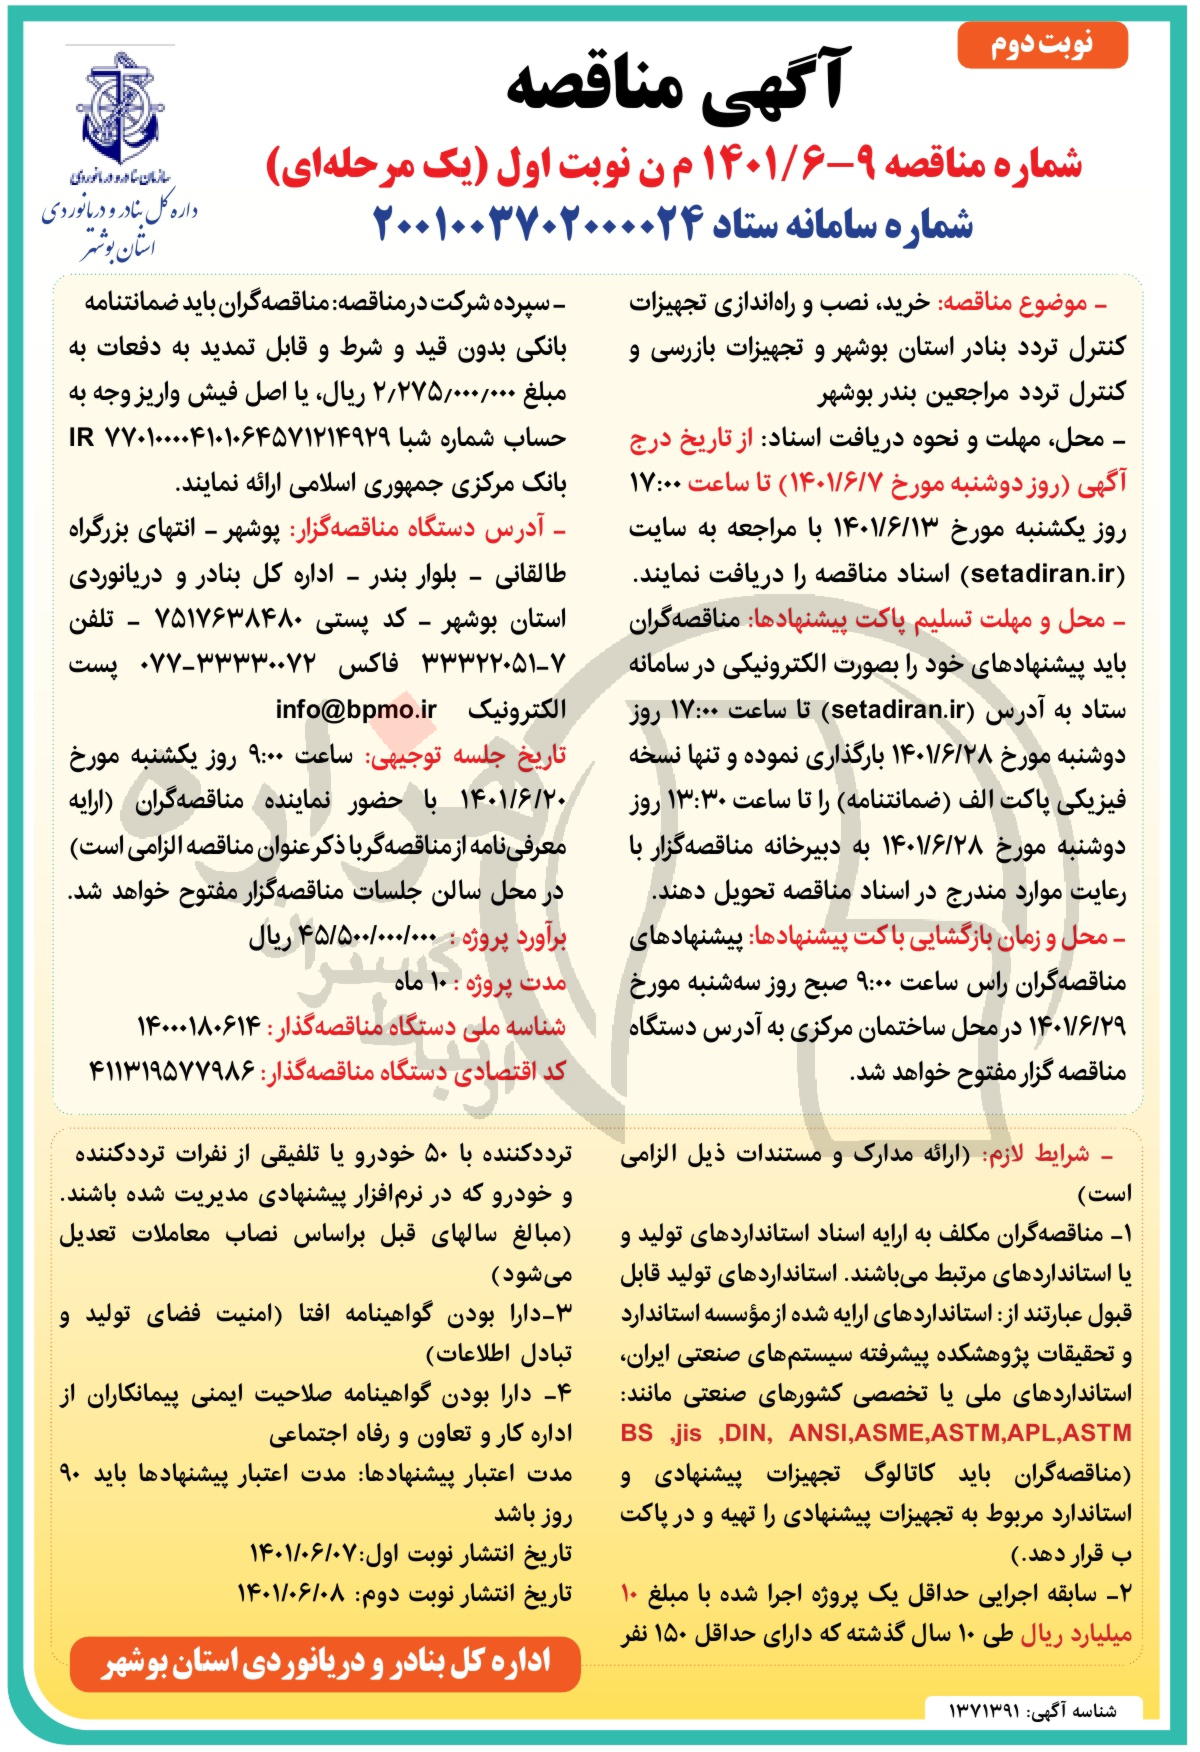 نوبت دوم
آگهی مناقصه
شماره مناقصه ۹-۱۴۰۱/۶ م ن نوبت اول (یک مرحله‌ای)
شماره سامانه ستاد ۲۰۰۱۰۰۳۷۰۲۰۰۰۰۲۴
سازمان بنادر و دریانوردی
داره کل بنادر و دریانوردی
استان بوشهر
- موضوع مناقصه: خرید، نصب و راه‌اندازی تجهیزات
کنترل تردد بنادر استان بوشهر و تجهیزات بازرسی و
کنترل تردد مراجعین بندر بوشهر
- محل، مهلت و نحوه دریافت اسناد: از تاریخ درج
آگهی (روز دوشنبه مورخ ۱۴۰۱/۶/۷) تا ساعت ۱۷:۰۰
روز یکشنبه مورخ ۱۴۰۱/۶/۱۳ با مراجعه به سایت
(setadiran.ir) اسناد مناقصه را دریافت نمایند.
- محل و مهلت تسلیم پاکت پیشنهادها: مناقصه‌گران
باید پیشنهادهای خود را بصورت الکترونیکی در سامانه
ستاد به آدرس (setadiran.ir) تا ساعت ۱۷:۰۰ روز
دوشنبه مورخ ۱۴۰۱/۶/۲۸ بارگذاری نموده و تنها نسخه
فیزیکی پاکت الف (ضمانتنامه) را تا ساعت ۱۳:۳۰ روز
دوشنبه مورخ ۱۴۰۱/۶/۲۸ به دبیرخانه مناقصه‌گزار با
رعایت موارد مندرج در اسناد مناقصه تحویل دهند.
- محل و زمان بازگشایی باکت پیشنهادها: پیشنهادهای
مناقصه‌گران راس ساعت ۹:۰۰ صبح روز سه‌شنبه مورخ
۱۴۰۱/۶/۲۹ در محل ساختمان مرکزی به آدرس دستگاه
مناقصه گزار مفتوح خواهد شد.
- سپرده شرکت در مناقصه: مناقصه‌گران باید ضمانتنامه
بانکی بدون قید و شرط و قابل تمدید به دفعات به
مبلغ ۲٫۲۷۵٫۰۰۰٫۰۰۰ ریال، یا اصل فیش واریز وجه به
حساب شماره شبا IR ۷۷۰۱۰۰۰۰۴۱۰۱۰۶۴۵۷۱۲۱۴۹۲۹
بانک مرکزی جمهوری اسلامی ارائه نمایند.
- آدرس دستگاه مناقصه‌گزار: پوشهر - انتهای بزرگراه
طالقانی - بلوار بندر - اداره کل بنادر و دریانوردی
استان بوشهر - کد پستی ۷۵۱۷۶۳۸۴۸۰ - تلفن
۷-۳۳۳۲۲۰۵۱ فاکس ۳۳۳۳۰۰۷۲-۰۷۷ پست
الکترونیک info@bpmo.ir
تاریخ جلسه توجیهی: ساعت ۹:۰۰ روز یکشنبه مورخ
۱۴۰۱/۶/۲۰ با حضور نماینده مناقصه‌گران (ارایه
معرفی‌نامه از مناقصه‌گر با ذکر عنوان مناقصه الزامی است)
در محل سالن جلسات مناقصه‌گزار مفتوح خواهد شد.
برآورد پروژه : ۴۵/۵۰۰/۰۰۰/۰۰۰ ریال
مدت پروژه : ۱۰ ماه
شناسه ملی دستگاه مناقصه‌گذار : ۱۴۰۰۰۱۸۰۶۱۴
کد اقتصادی دستگاه مناقصه‌گذار: ۴۱۱۳۱۹۵۷۷۹۸۶
هزاره
گستران
ارتباط
- شرایط لازم: (ارائه مدارک و مستندات ذیل الزامی
است)
۱- مناقصه‌گران مکلف به ارایه اسناد استانداردهای تولید و
یا استانداردهای مرتبط می‌باشند. استانداردهای تولید قابل
قبول عبارتند از: استانداردهای ارایه شده از مؤسسه استاندارد
و تحقیقات پژوهشکده پیشرفته سیستم‌های صنعتی ایران،
استانداردهای ملی یا تخصصی کشورهای صنعتی مانند:
BS ,jis ,DIN, ANSI,ASME,ASTM,APL,ASTM
(مناقصه‌گران باید کاتالوگ تجهیزات پیشنهادی و
استاندارد مربوط به تجهیزات پیشنهادی را تهیه و در پاکت
ب قرار دهد.)
۲- سابقه اجرایی حداقل یک پروژه اجرا شده با مبلغ ۱۰
میلیارد ریال طی ۱۰ سال گذشته که دارای حداقل ۱۵۰ نفر
ترددکننده با ۵۰ خودرو یا تلفیقی از نفرات ترددکننده
و خودرو که در نرم‌افزار پیشنهادی مدیریت شده باشند.
(مبالغ سالهای قبل براساس نصاب معاملات تعدیل
می‌شود)
۳-دارا بودن گواهینامه افتا (امنیت فضای تولید و
تبادل اطلاعات)
۴- دارا بودن گواهینامه صلاحیت ایمنی پیمانکاران از
اداره کار و تعاون و رفاه اجتماعی
مدت اعتبار پیشنهادها: مدت اعتبار پیشنهادها باید ۹۰
روز باشد
تاریخ انتشار نوبت اول:۱۴۰۱/۰۶/۰۷
تاریخ انتشار نوبت دوم: ۱۴۰۱/۰۶/۰۸
اداره کل بنادر و دریانوردی استان بوشهر
شناسه آگهی: ۱۳۷۱۳۹۱